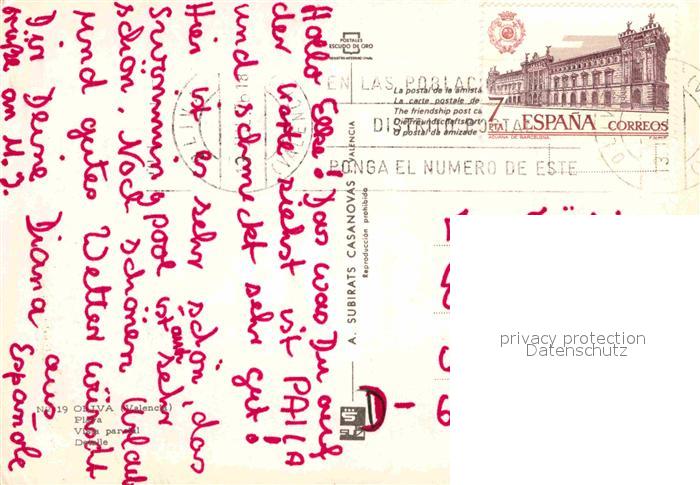 Hallo Elke! Das was Du auf
der Karte siehst ist PAELLA
und schmeckt sehr gut!
Hier ist es sehr schön, das
Swimmingpool ist auch sehr
schön. Noch schönen Urlaub
und gutes Wetter wünscht
Dir Deine Diana aus
Españole
POSTALES
ESCUDO DE ORO
La postal de la amista
La carte postale de
The friendship post ca
Die Freundschaftskart
O postal da amizade
EN LAS POBLACI
DISTRITO POSTAL
PONGA EL NUMERO DE ESTE
7
PTA
ESPAÑA CORREOS
ADUANA DE BARCELONA
A. SUBIRATS CASANOVAS VALENCIA
Reproducción prohibida
N.º 19 OLIVA (Valencia)
Playa
Vista parcial
Detalle
D-6
privacy protection
Datenschutz